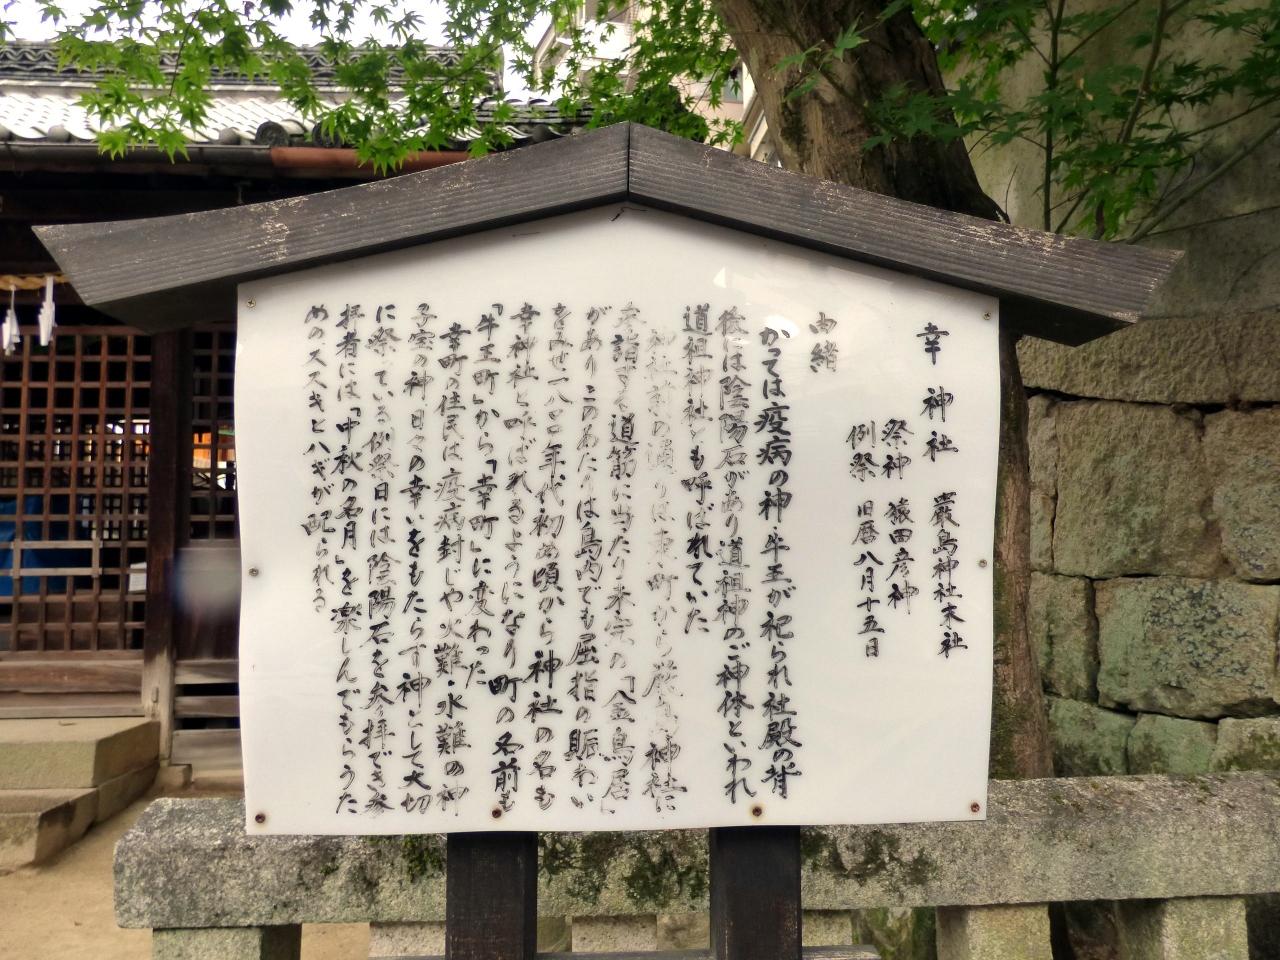 幸神社 嚴島神社末社
祭神 猿田彦神
例祭 旧暦八月十五日
由緒
かつては疫病の神・牛王が祀られ社殿の背
後には陰陽石があり道祖神のご神体といわれ
道祖神社とも呼ばれていた
神社前の通りは東 町から厳島神社に
参詣する道筋に当たり末完の「金鳥居」
がありこのあたりは島内でも屈指の賑わい
をみせ一八 年代初め頃から神社の名も
幸神社と呼ばれるようになり町の名前も
「牛王町」から「幸町」に変わった
幸町の住民は疫病封じや火難・水難の神
子宝の神日々の幸いをもたらす神として大切
に祭っている例祭日には陰陽石を参拝でき参
拝者には「中秋の名月」を楽しんでもらうた
めのススキとハギが配られる